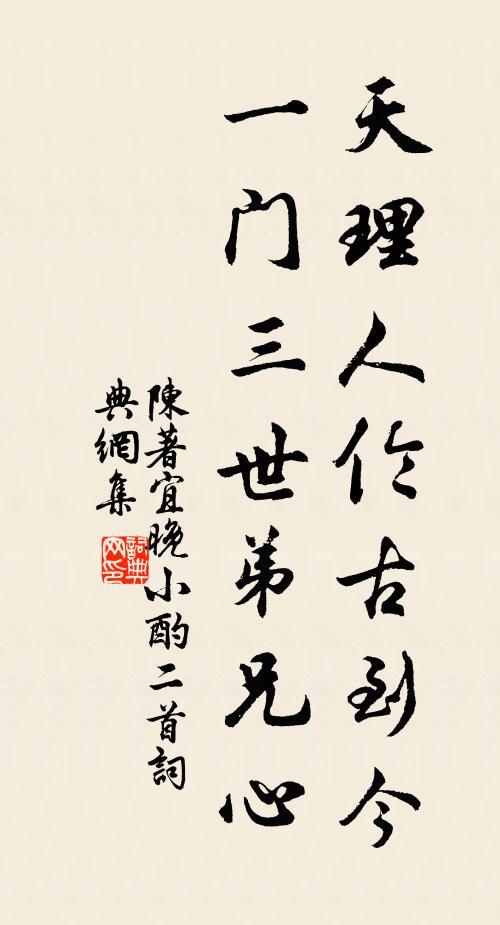 天理人伦古到今
一门三世弟兄心
陳著宜晚小酌二首詞
典網集
詞典
网印